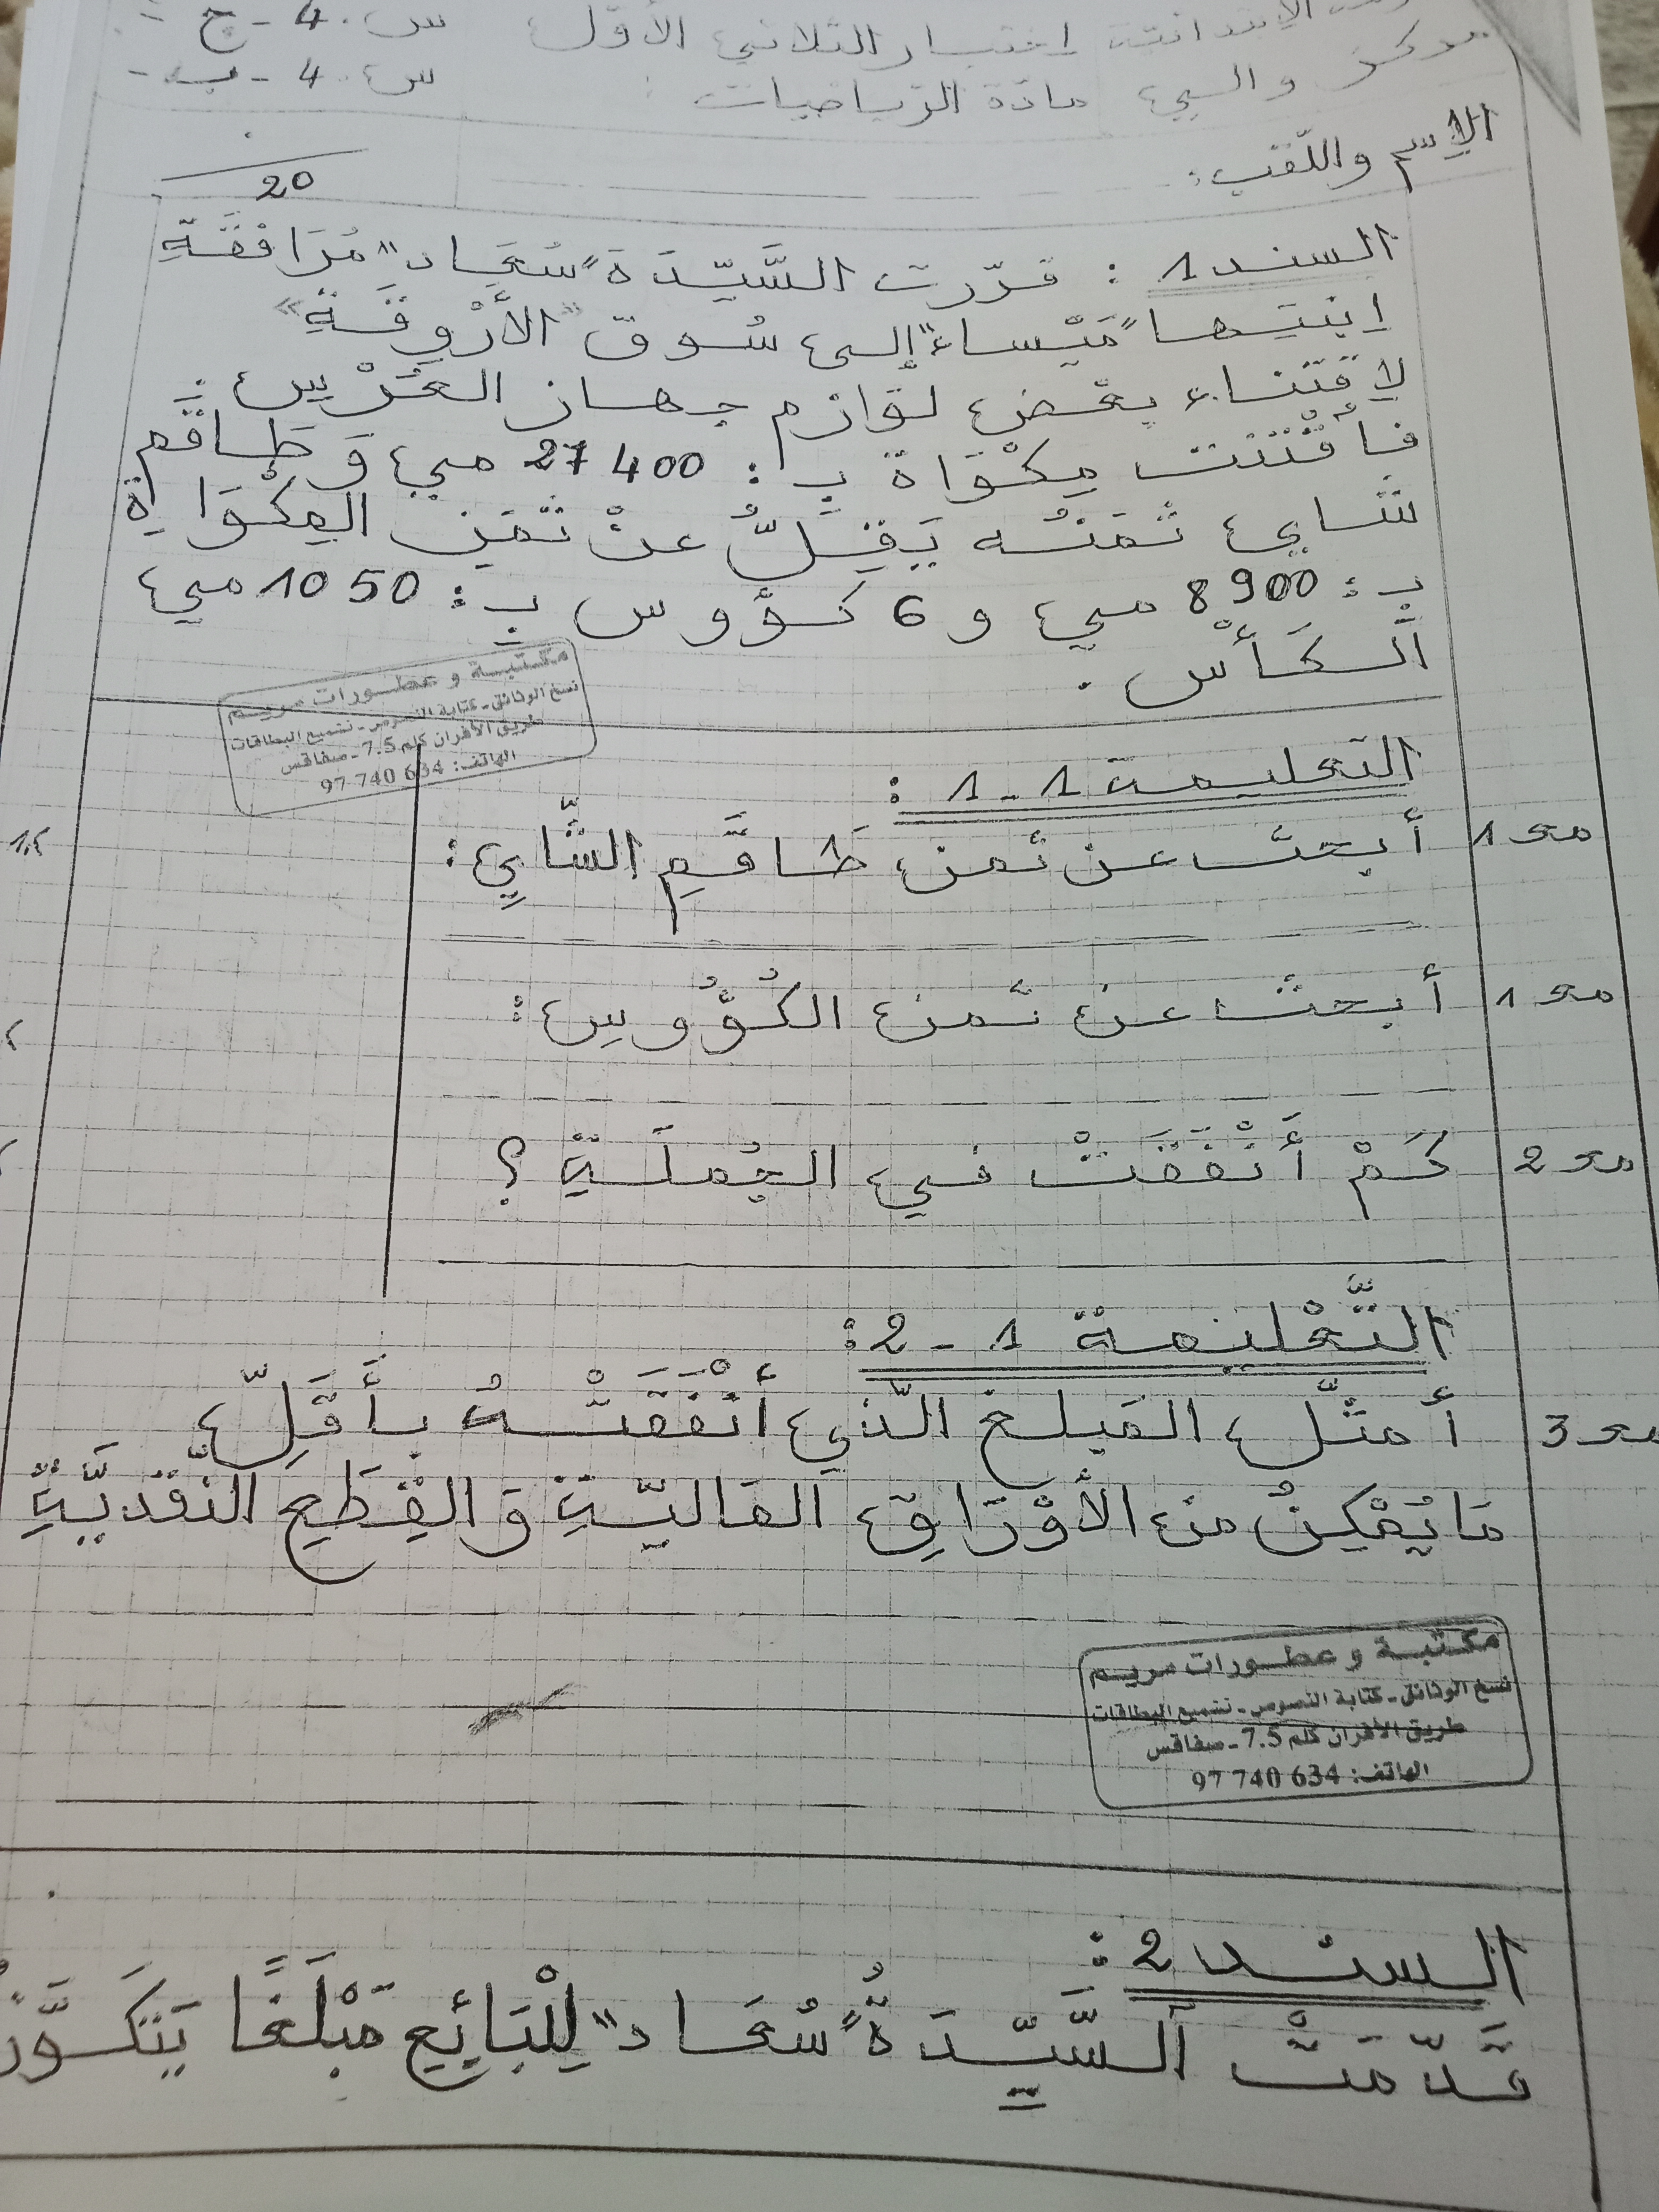 الابتدائية اختبار الثلاثي الأوّل س.4-ج-
مركز والي مادّة الرّياضيات: س.4-ب-
الاسم واللّقب:
20
السند 1: قرّرت السَّيّدَة "سُعَاد" مُرَافَقَةِ
ابنتها "مَيْساء" إلى سُوق "الأَرْوِقَةِ"
لاقتناء بعض لوَازم جهاز العَرُوسِ.
فاُقْتَنَت مِكْوَاة بِ: 27400 مي وَ طَاقَم
شاي ثَمَنُه يَقِلُّ عنْ ثَمَنِ المِكْوَاةِ
بِ: 8900 مي و 6 كُؤُوس بِ: 1050 مي
الكَأْس.
مكتبة و عطورات مريم
نسخ الوثائق - كتابة النصوص - تشميع البطاقات
طريق الأفران كلم 7.5 - صفاقس
الهاتف: 97 740 634
التعليمة 1-1:
مع1 أبحث عن ثمن طَاقَمِ الشَّاي:
مع1 أبحث عن ثمن الكُؤُوسِ:
مع2 كَمْ أَنْفَقَتْ في الجُملَةِ؟
التَّعْليمة 1-2:
مع3 أمثّل المَبلغ الّذي أَنْفَقَتْهُ بأَقَلِّ
مَا يُمْكِنُ من الأَوْرَاقِ المَاليّةِ وَ القِطَعِ النّقْديَّةِ
مكتبة و عطورات مريم
نسخ الوثائق - كتابة النصوص - تشميع البطاقات
طريق الأفران كلم 7.5 - صفاقس
الهاتف: 97 740 634
السند 2:
قَدّمَتْ السَّيّدَةُ "سُعَاد" لِلْبَائِعِ مَبْلَغًا يَتَكَوَّنُ